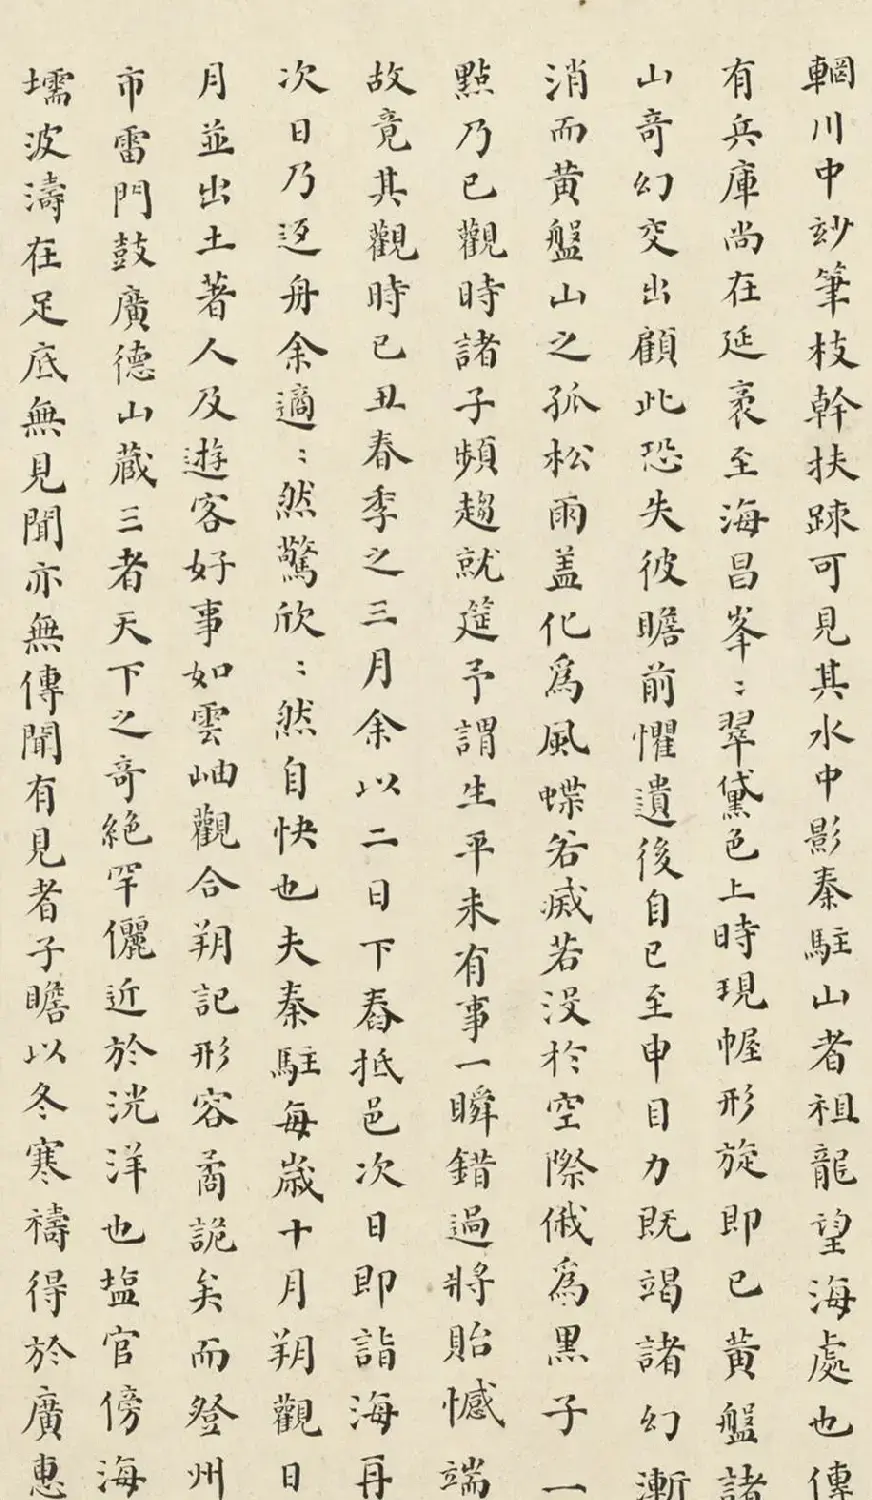 輞川中玅筆枝幹扶踈可見其水中影秦駐山者祖龍望海處也傳
有兵庫尚在延袤至海昌峯峯翠黛色上時現幄形旋即已黄盤諸
山竒幻突出顧此恐失彼瞻前懼遺後自巳至申目力既竭諸幻漸
消而黄盤山之孤松雨盖化為風蝶若滅若没於空際俄為黒子一
點乃已觀時諸子頻趨就筵予謂生平未有事一瞬錯過將貽憾端
故竟其觀時已丑春季之三月余以二日下舂抵邑次日即詣海再
次日乃返舟余適〻然驚欣〻然自快也夫秦駐每歲十月朔觀日
月並出土著人及遊客好事如雲岫觀合朔記形容矞詭矣而登州
市雷門鼓廣德山蔵三者天下之竒絶罕儷近於洸洋也塩官傍海
壖波濤在足底無見聞亦無傳聞有見者子瞻以冬寒禱得於廣惠